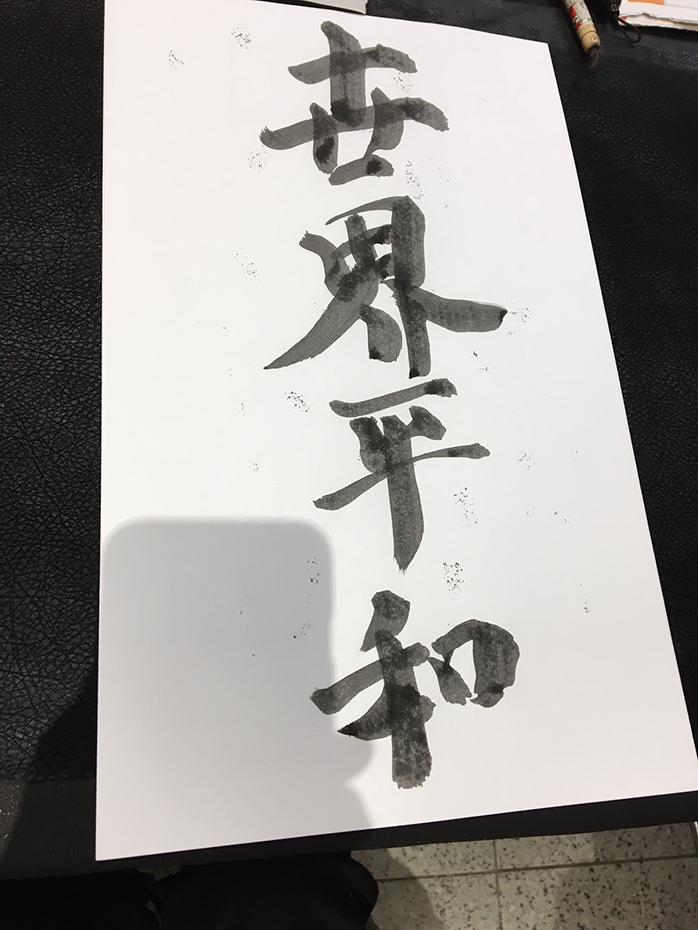 世界平和